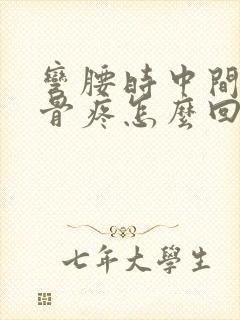 彎腰時中間
骨疼怎麼回
七年大學生